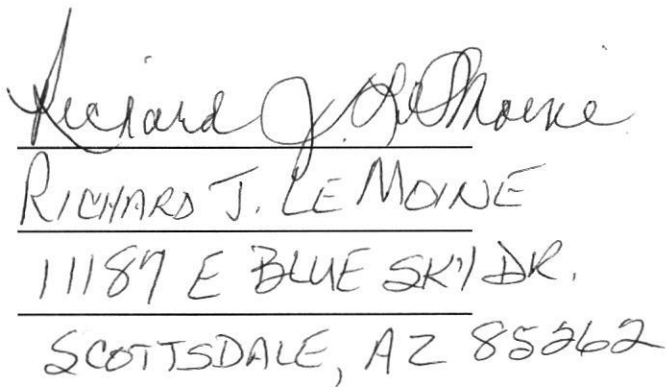 Richard J. LeMoine
RICHARD J. LE MOINE
11187 E BLUE SKY DR.
SCOTTSDALE, AZ 85262